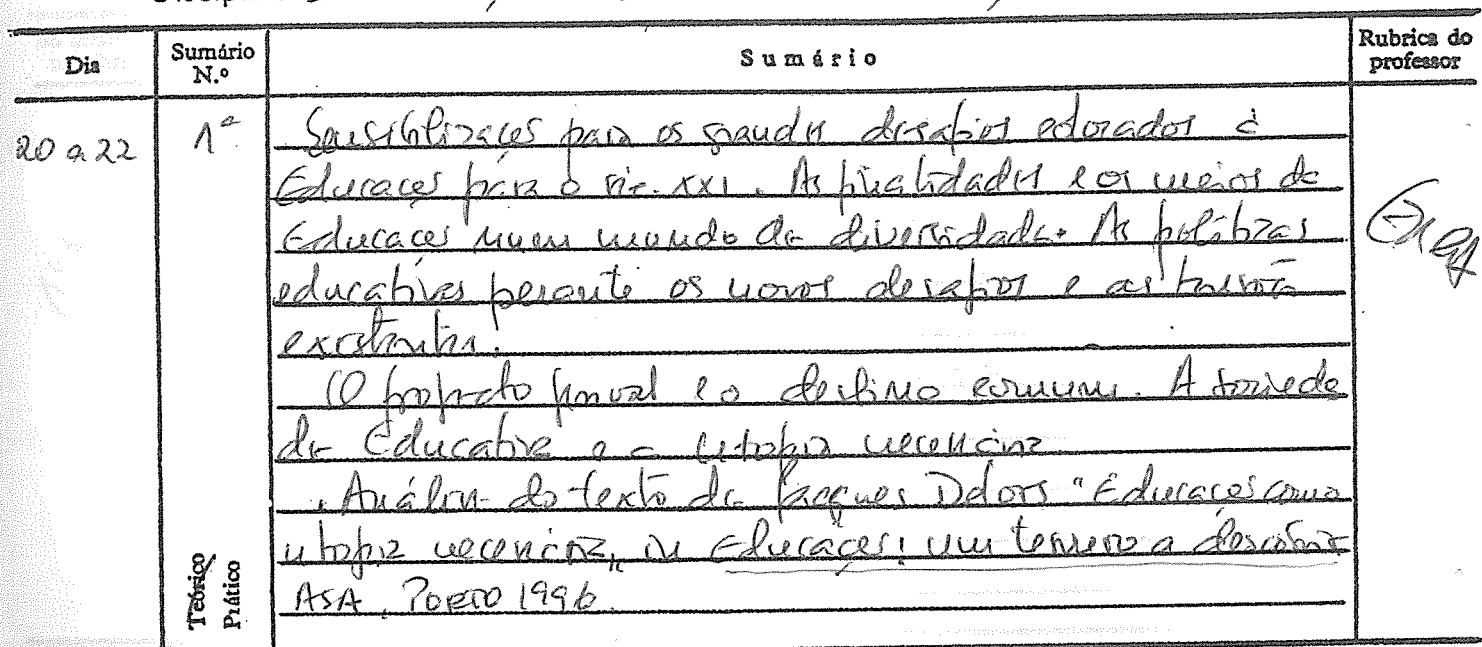 Dia Sumário N.º Sumário Rubrica do professor
20 a 22 1ª Sensibilização para os grandes desafios à
Educação para o séc. XXI. As finalidades e os meios de
Educação num mundo de diversidade. As políticas
educativas perante os novos desafios e as
existentes.
O projecto e o destino comum. A socieda
de Educativa e a utopia necessária
. Análise do texto de Jacques Delors "Educação como
utopia necessária", in Educação: um tesouro a descobrir
ASA, Porto 1996.
Teórico
Prático